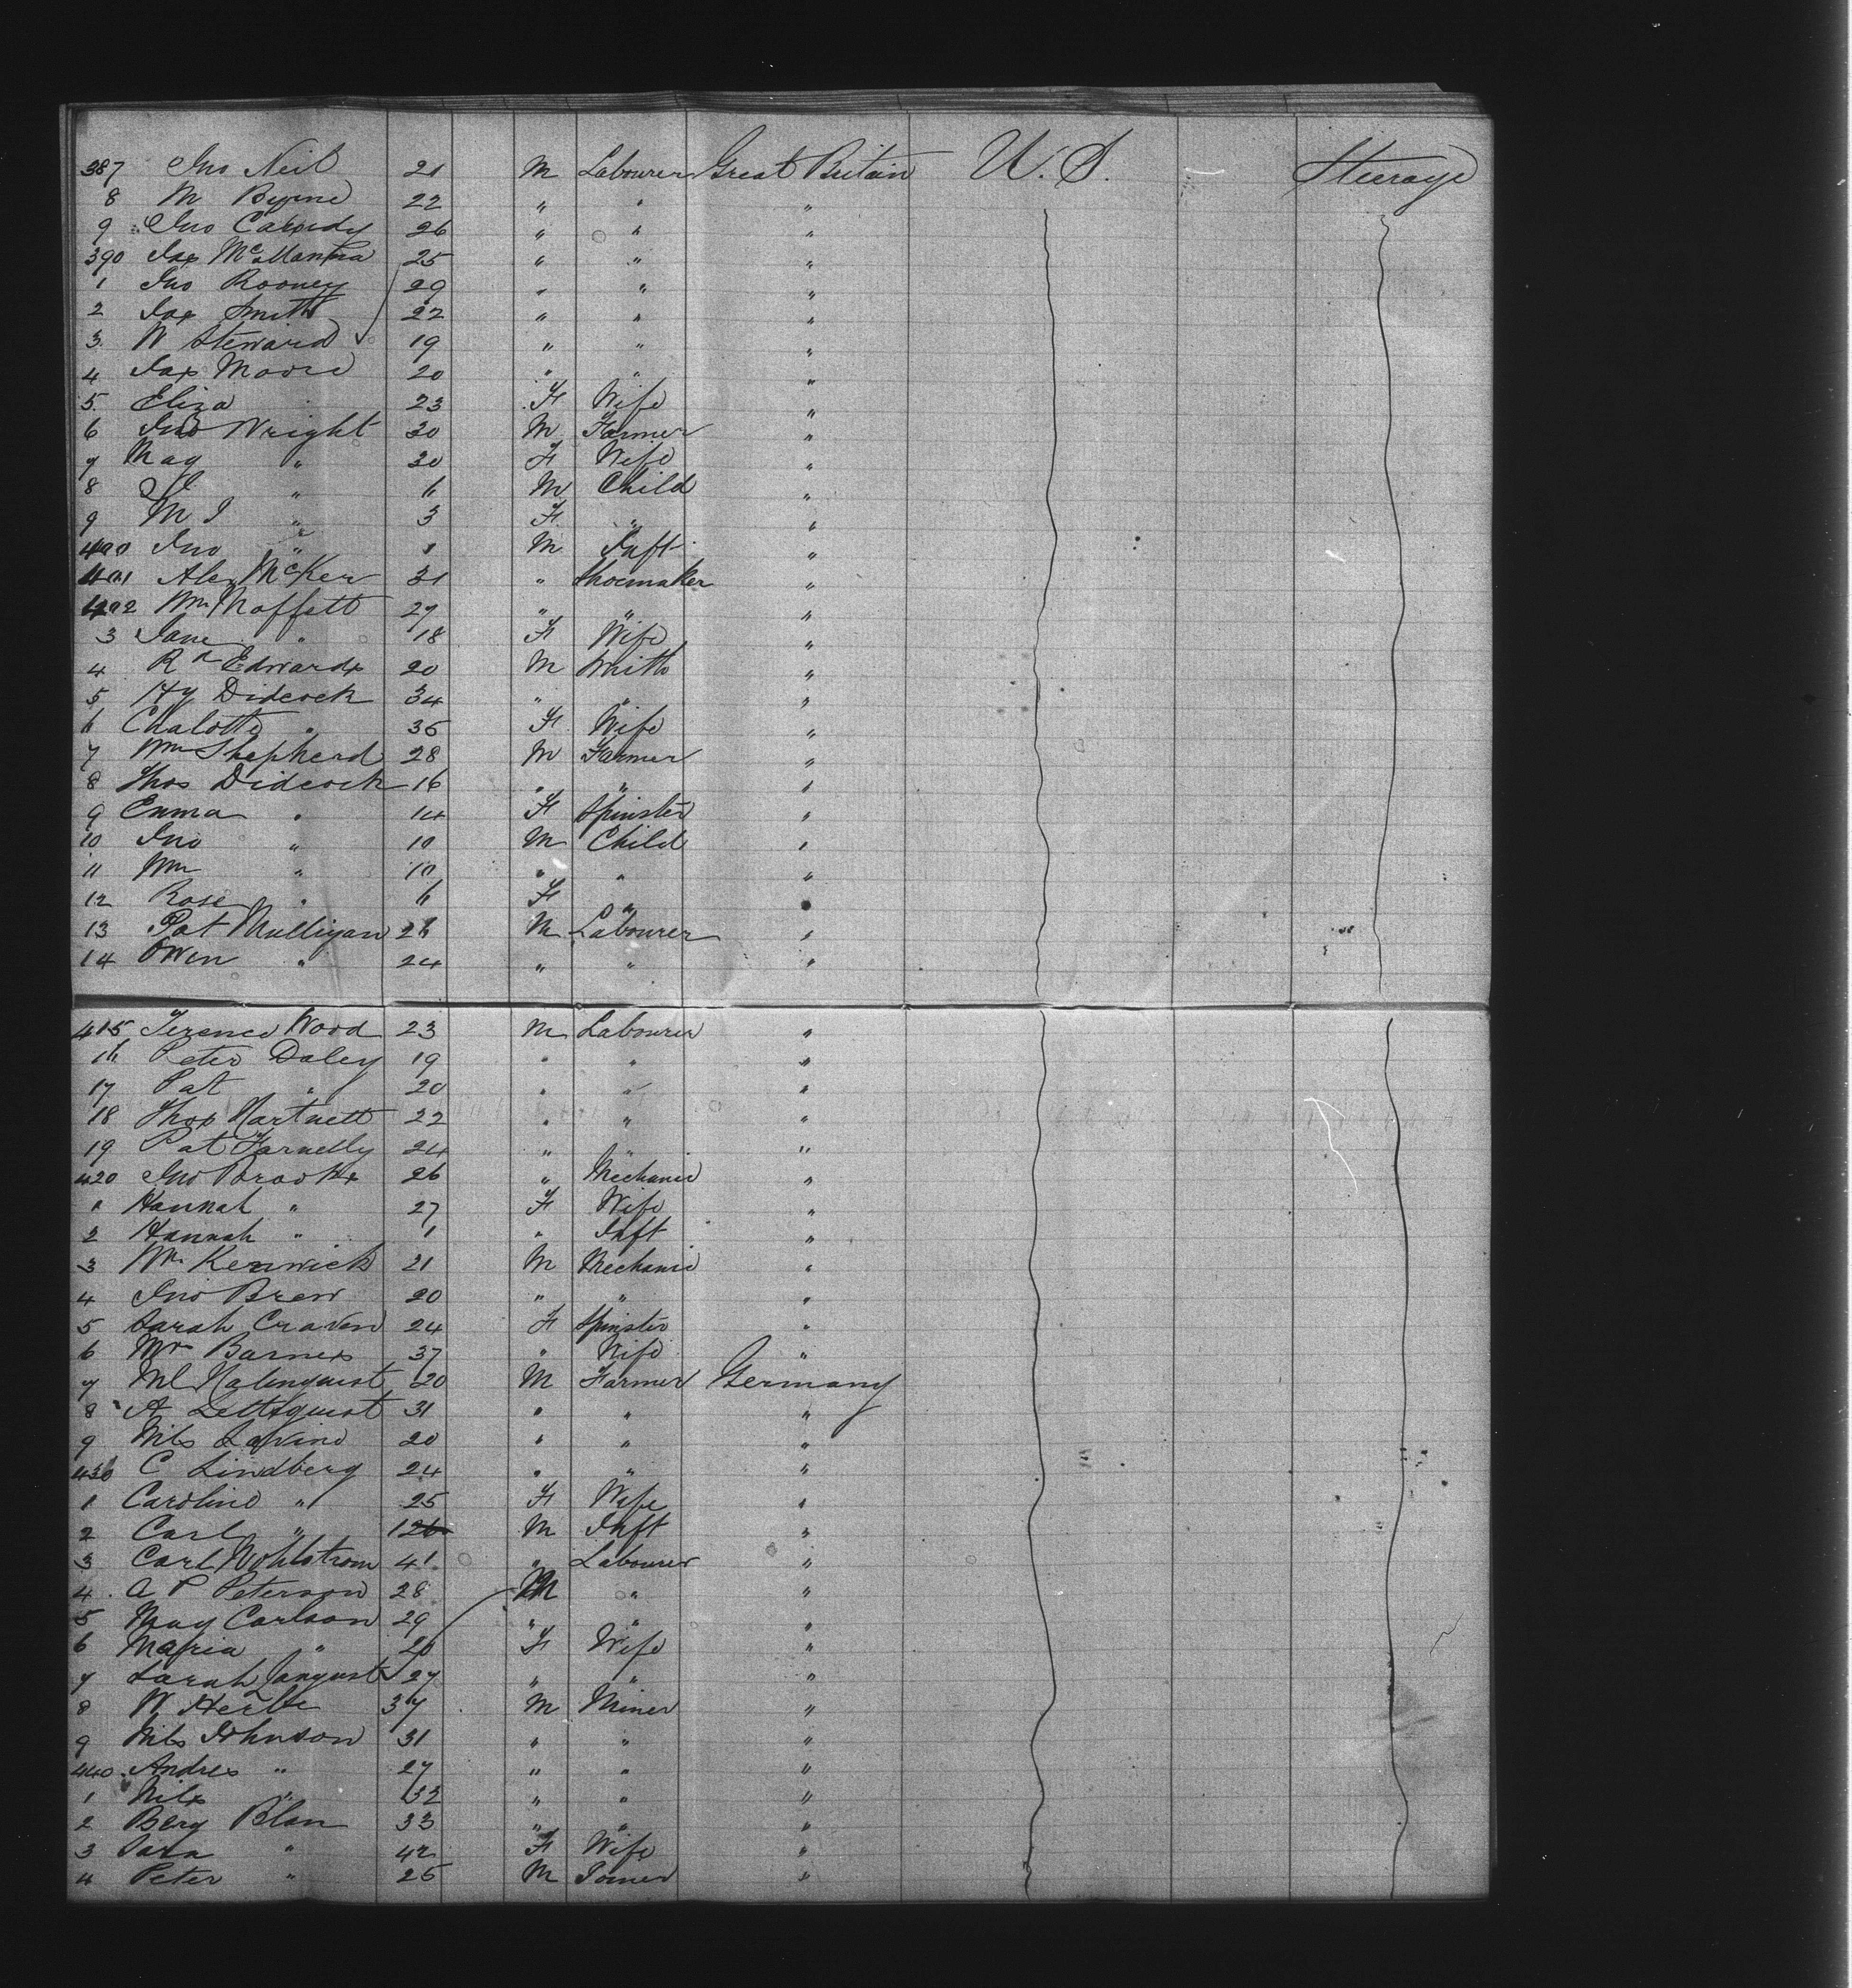 387 Jno Neil 21 M Labourer Great Britain U. S. Steerage
8 M Byrne 22 " " "
9 Jno Cassidy 26 " " "
390 Jas 25 " " "
1 Jno Rooney 29 " " "
2 Jas Smith 22 " " "
3 W Steward 19 " " "
4 Jas Moore 20 " " "
5 Eliza " 23 F Wife "
6 Jno Wright 30 M Farmer "
7 Mag " 30 F Wife "
8 " 6 M Child "
9 M J " 3 F " "
400 Jno " 1 M Inft "
401 Alex McKer 31 " Shoemaker "
402 Wm Moffett 27 " " "
3 Jane " 18 F Wife "
4 Rd Edwards 20 M Smith "
5 Hy Didcock 34 " " "
6 Chalotte " 35 F Wife "
7 Wm Shepherd 28 M Farmer "
8 Thos Didcock 16 " " "
9 Emma " 14 F Spinster "
10 Jno " 10 M Child "
11 Wm " 10 " " "
12 Rose " 6 F " "
13 Pat Mulligan 26 M Labourer "
14 Owen " 24 " " "
415 Terence Wood 23 M Labourer "
16 Peter Daley 19 " " "
17 Pat " 20 " " "
18 Thos Hartnett 22 " " "
19 Pat Farnelly 24 " " "
420 Jno Brooks 26 " Mechanic "
1 Hannah " 27 F Wife "
2 Hannah " 1 " Inft "
3 Wm Kenwick 21 M Mechanic "
4 Jno Brew 20 " " "
5 Sarah Craven 24 F Spinster "
6 Mrs Barnes 37 " Wife "
7 20 M Farmer Germany
8 A 31 " " "
9 Nils 20 " " "
430 C Lindberg 24 " " "
1 Caroline " 25 F Wife "
2 Carl " 1 M Inft "
3 Carl Wohlstrom 41 " Labourer "
4 A P Peterson 28 M " "
5 May Carlson 29 " " "
6 Maria " 20 F Wife "
7 Sarah 27 " " "
8 W 37 M Miner "
9 Nils Johnson 31 " " "
440 Andres " 27 " " "
1 Nils " 32 " " "
2 Berg Blan 33 " " "
3 " 42 F Wife "
4 Peter " 25 M Joiner "